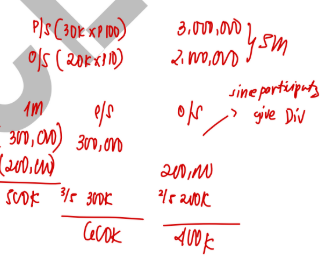 P/S (30K x P100) 3,000,000
O/S (20K x P10) 2,000,000 } 5M
since participating
1M P/S O/S > give Div
(300,000) 300,000
(200,000) 200,000
500K 3/5 300K 2/5 200K
600K 400K